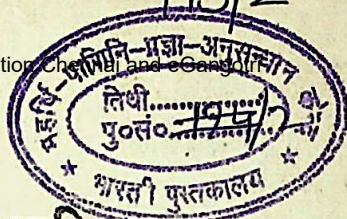 tion Chennai and eGangotri
महर्षि-पाणिनि-प्रज्ञा-अनुसन्धान
तिथी
पु०सं०
भारती पुस्तकालय